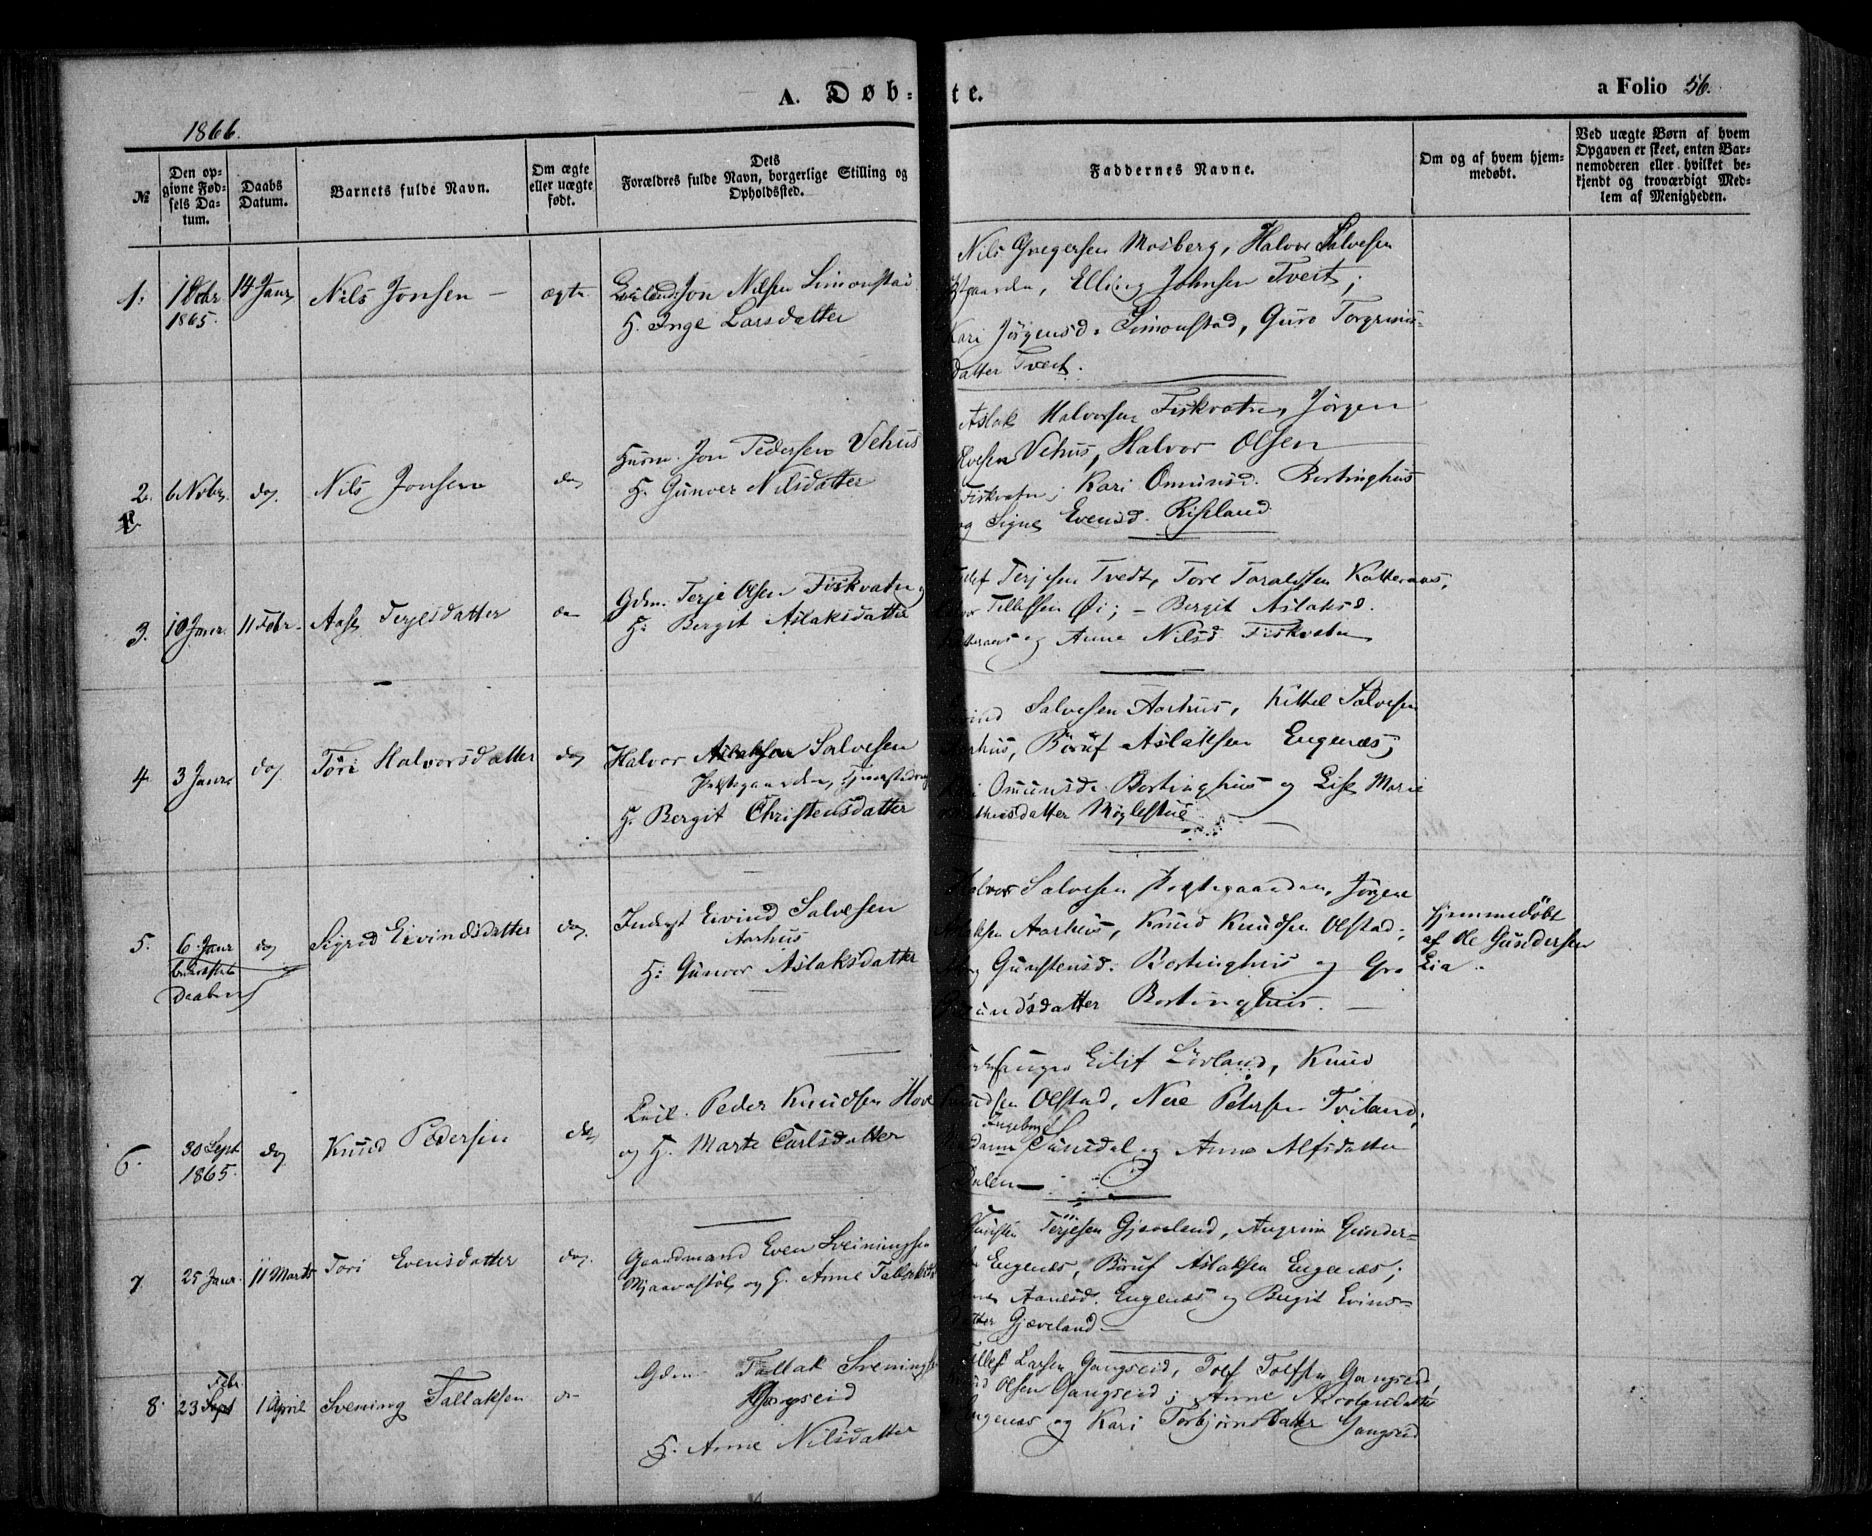 A. Døb= te.
a Folio 56.
1866.
№
Den op=
givne Fød=
sels Da=
tum.
Daabs
Datum.
Barnets fulde Navn.
Om ægte
eller uægte
født.
Dets
Forældres fulde Navn, borgerlige Stilling og
Opholdssted.
Faddernes Navne.
Om og af hvem hjem=
medøbt.
Ved uægte Børn af hvem
Opgaven er skeet, enten Bar=
nemoderen eller hvilket be=
kjendt og troværdigt Med=
lem af Menigheden.
1.
1865.
14 Janr
Nils Jonsen –
ægte
Jon Nilsen Simonstad
H. Inge Larsdatter
Nils Gregersen Mosberg, Halvor Salvesen
Elling Johnsen Tvert;
Kari Jørgensd. Simonstad, Guro Torgrims-
datter Tvert.
2.
6 Novbr.
do.
Nils Jonsen
do
Husm. Jon Pedersen Vehus
H. Gunver Nilsdatter
Aslak Halvorsen Fiskvatn, Jørgen
Vehus, Halvor Olsen
Fiskvatn; Kari Omunsd. Bortinghus
og Signe Evensd. Riseland
3.
10 Janr.
11 Febr.
Aase Terjesdatter
do
Gdm. Terje Olsen Fiskvatn
H. Bergit Aslaksdatter
Terjesen Tvedt, Tore Taraldsen Katteraas,
Tellefsen Øi; – Bergit Aslaksd.
og Anne Nilsd Fiskvatn
4.
3 Janr
do.
Töri Halvorsdatter
do
Halvor Aslaksen Salvesen
Præstegaarden,
H. Bergit Christensdatter
Salvesen Aarhus, Kittel Salvesen
Börüf Aslaksen Engenæs;
Omunsd. Bortinghus og Lise Marie
Møglestue
5.
6 Janr
do
Daaben
Sigrid Eivindsdatter
do.
Inderst Eivind Salvesen
Aarhus
H: Gunver Aslaksdatter
Halvor Salvesen Præstegaarden, Jörgen
Aarhus, Knud Knudsen Olstad;
Gunstensd. Bortinghus og Gro
Bortinghus. –
Hjemmedöbt
af Ole Gundersen
Lia.
6.
30 Sept
1865.
do
Knud Pedersen
do
Peder Knudsen Hove
og H. Marte Carlsdatter
Eilif Lörland, Knud
Olstad, Nere Petersen Tviland;
Ingeborg
Sunsdal og Anne Alfsdatter
Dalen –
7.
25 Janr.
11 Marts
Tori Evensdatter
do.
Gaardmand Even Sveiningsen
Mjaavastöl og H. Anne
Terjesen Gjæveland, Augrim Gunder-
Engenæs, Börüf Aslaksen Engenæs;
Aanesd. Engenæs og Bergit Evins-
datter Gjæveland –
8.
Febr.
23 Sept
1 April
Svening Tallaksen
Gdm Tallak
Gangseid
H. Anne Nilsdatter
Tellef Larsen Gangseid, Tolf Tolfsen Gangseid
Olsen Gangseid; Anne
Engenæs og Kari Torbjørnsdatter Gangseid